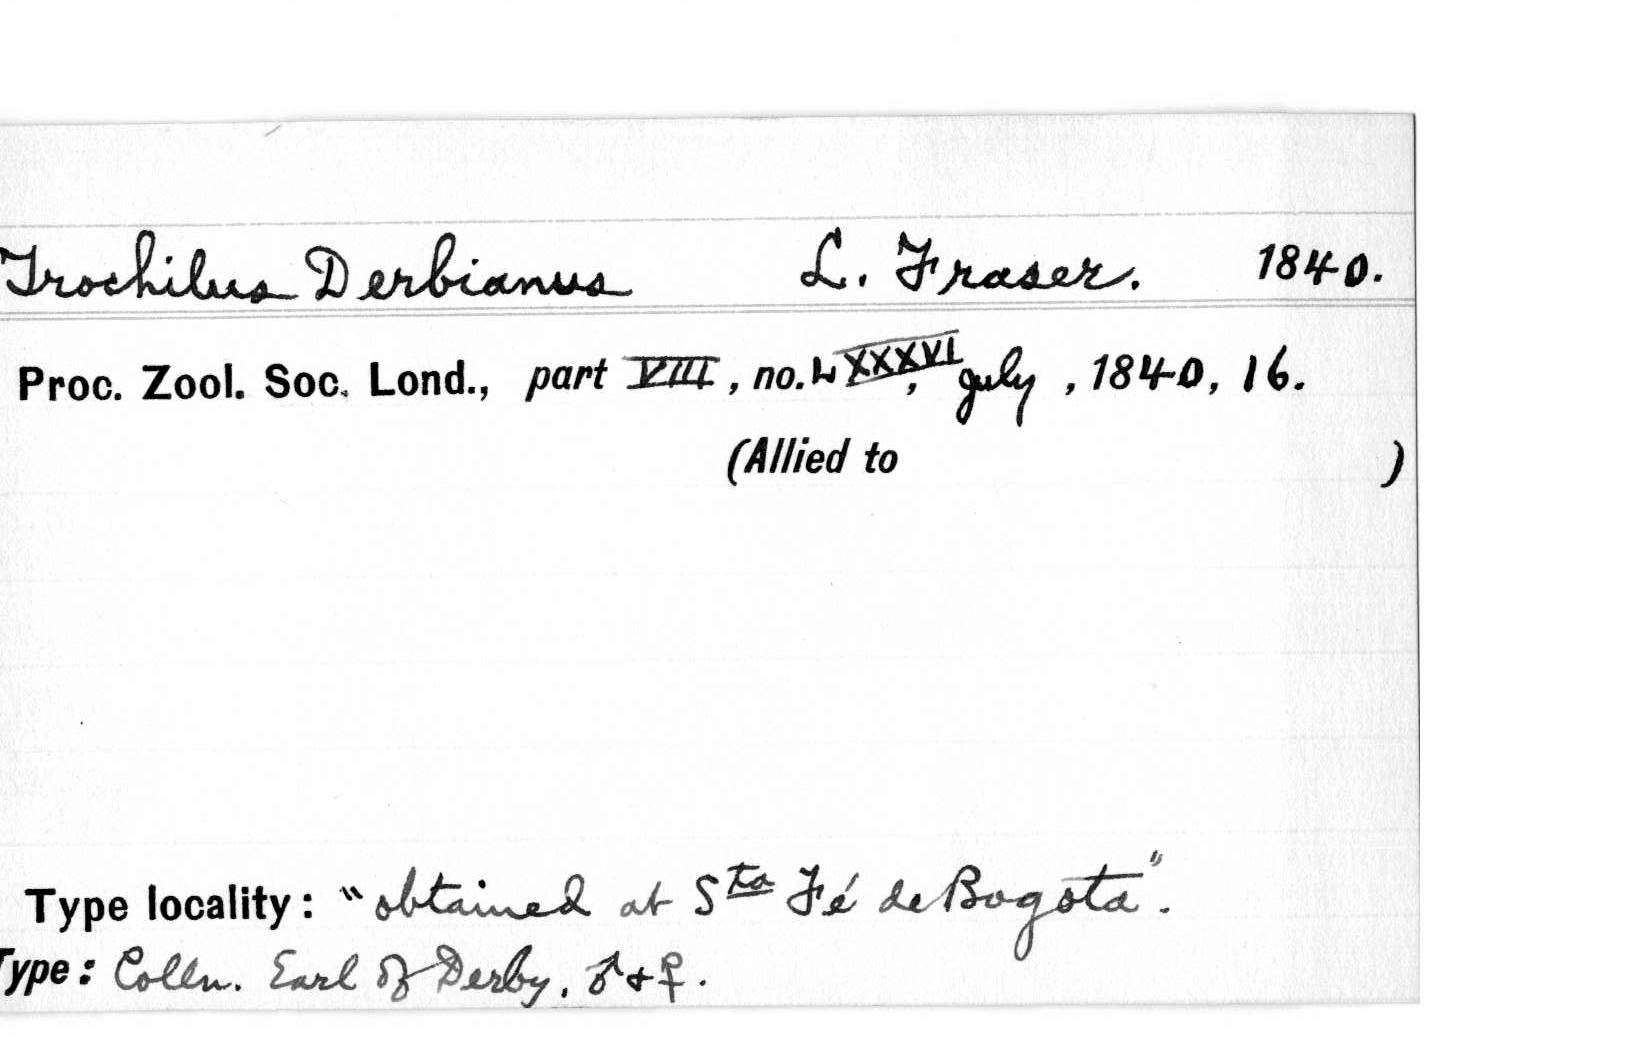 Trochilus Derbianus L. Fraser. 1840.
Proc. Zool. Soc. Lond., part VIII, no. LXXXVI, July, 1840, 16.
(Allied to )
Type locality: "obtained at Sta Fé de Bogota".
Type: Colln. Earl of Derby, ♂+♀.